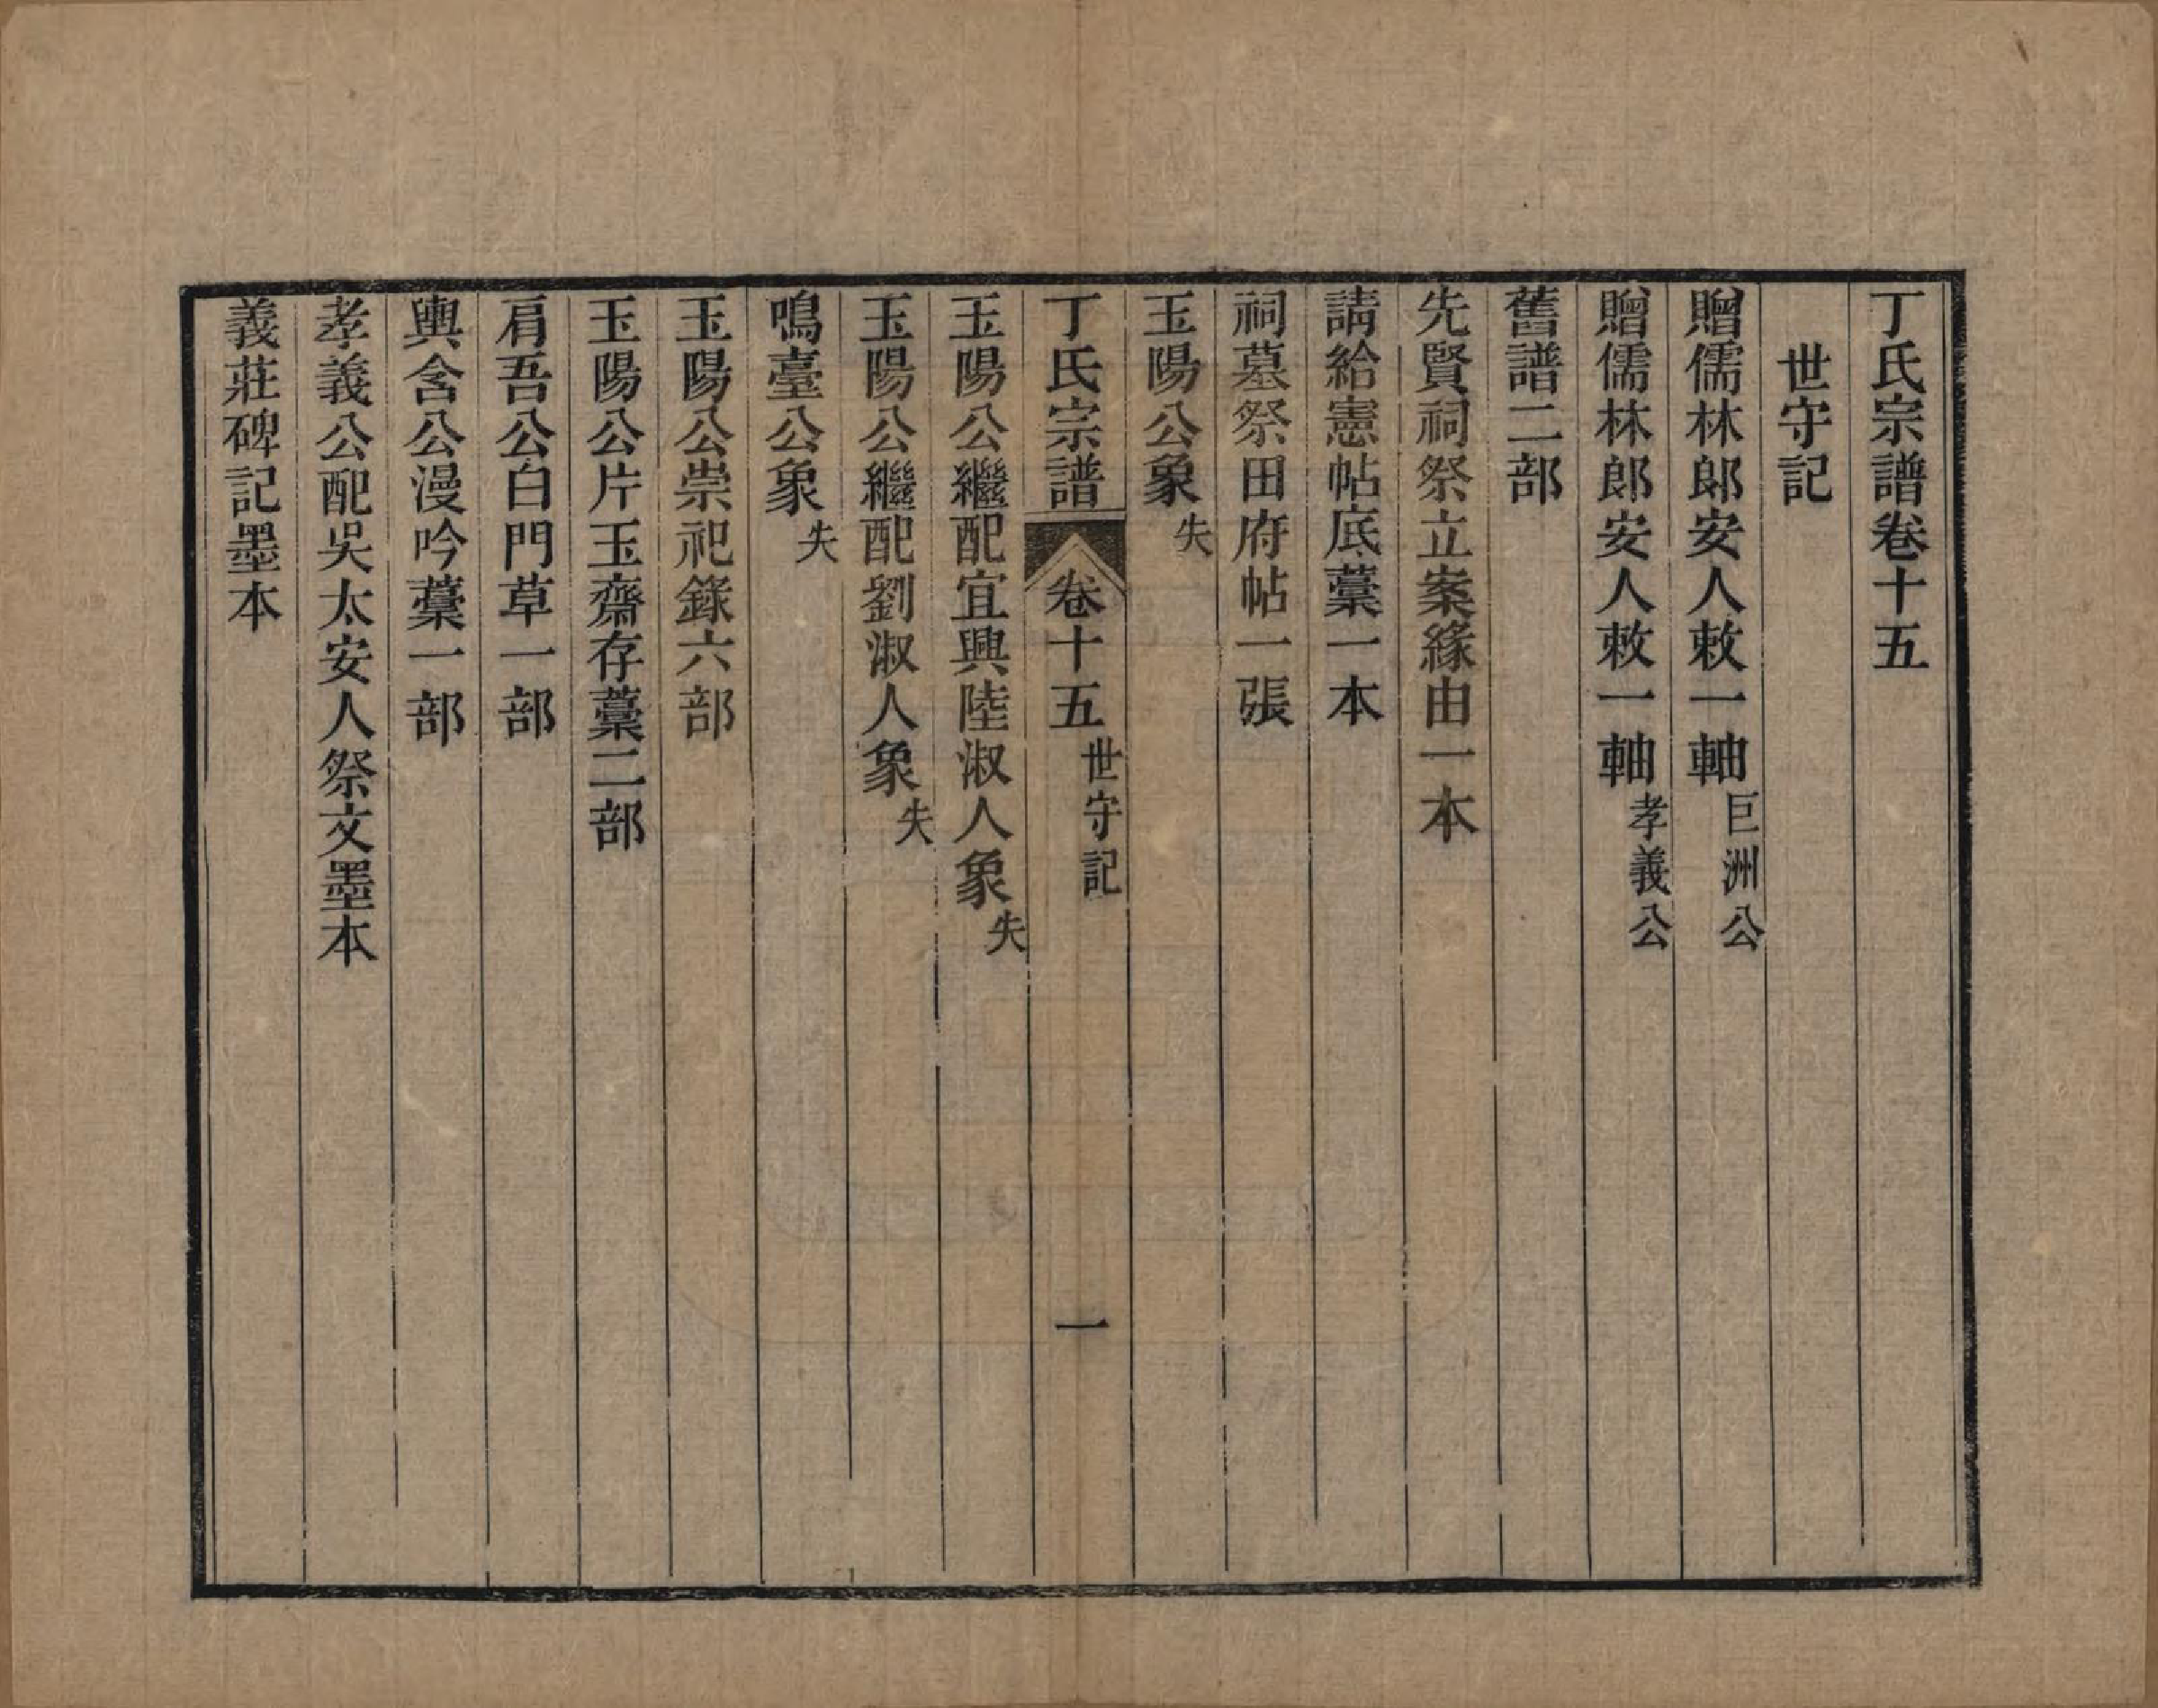 丁氏宗譜卷十五
世守記
贈儒林郎安人敕一軸巨洲公
贈儒林郎安人敕一軸孝義公
舊譜二部
先賢祠祭立案緣由一本
請給憲帖底藁一本
祠墓祭田府帖一張
玉陽公象失
丁氏宗譜 卷十五 世守記 一
玉陽公繼配宜興陸淑人象失
玉陽公繼配劉淑人象失
鳴臺公象失
玉陽公崇祀錄六部
玉陽公片玉齋存藁二部
肩吾公白門草一部
輿含公漫吟藁一部
孝義公配吳太安人祭文墨本
義莊碑記墨本